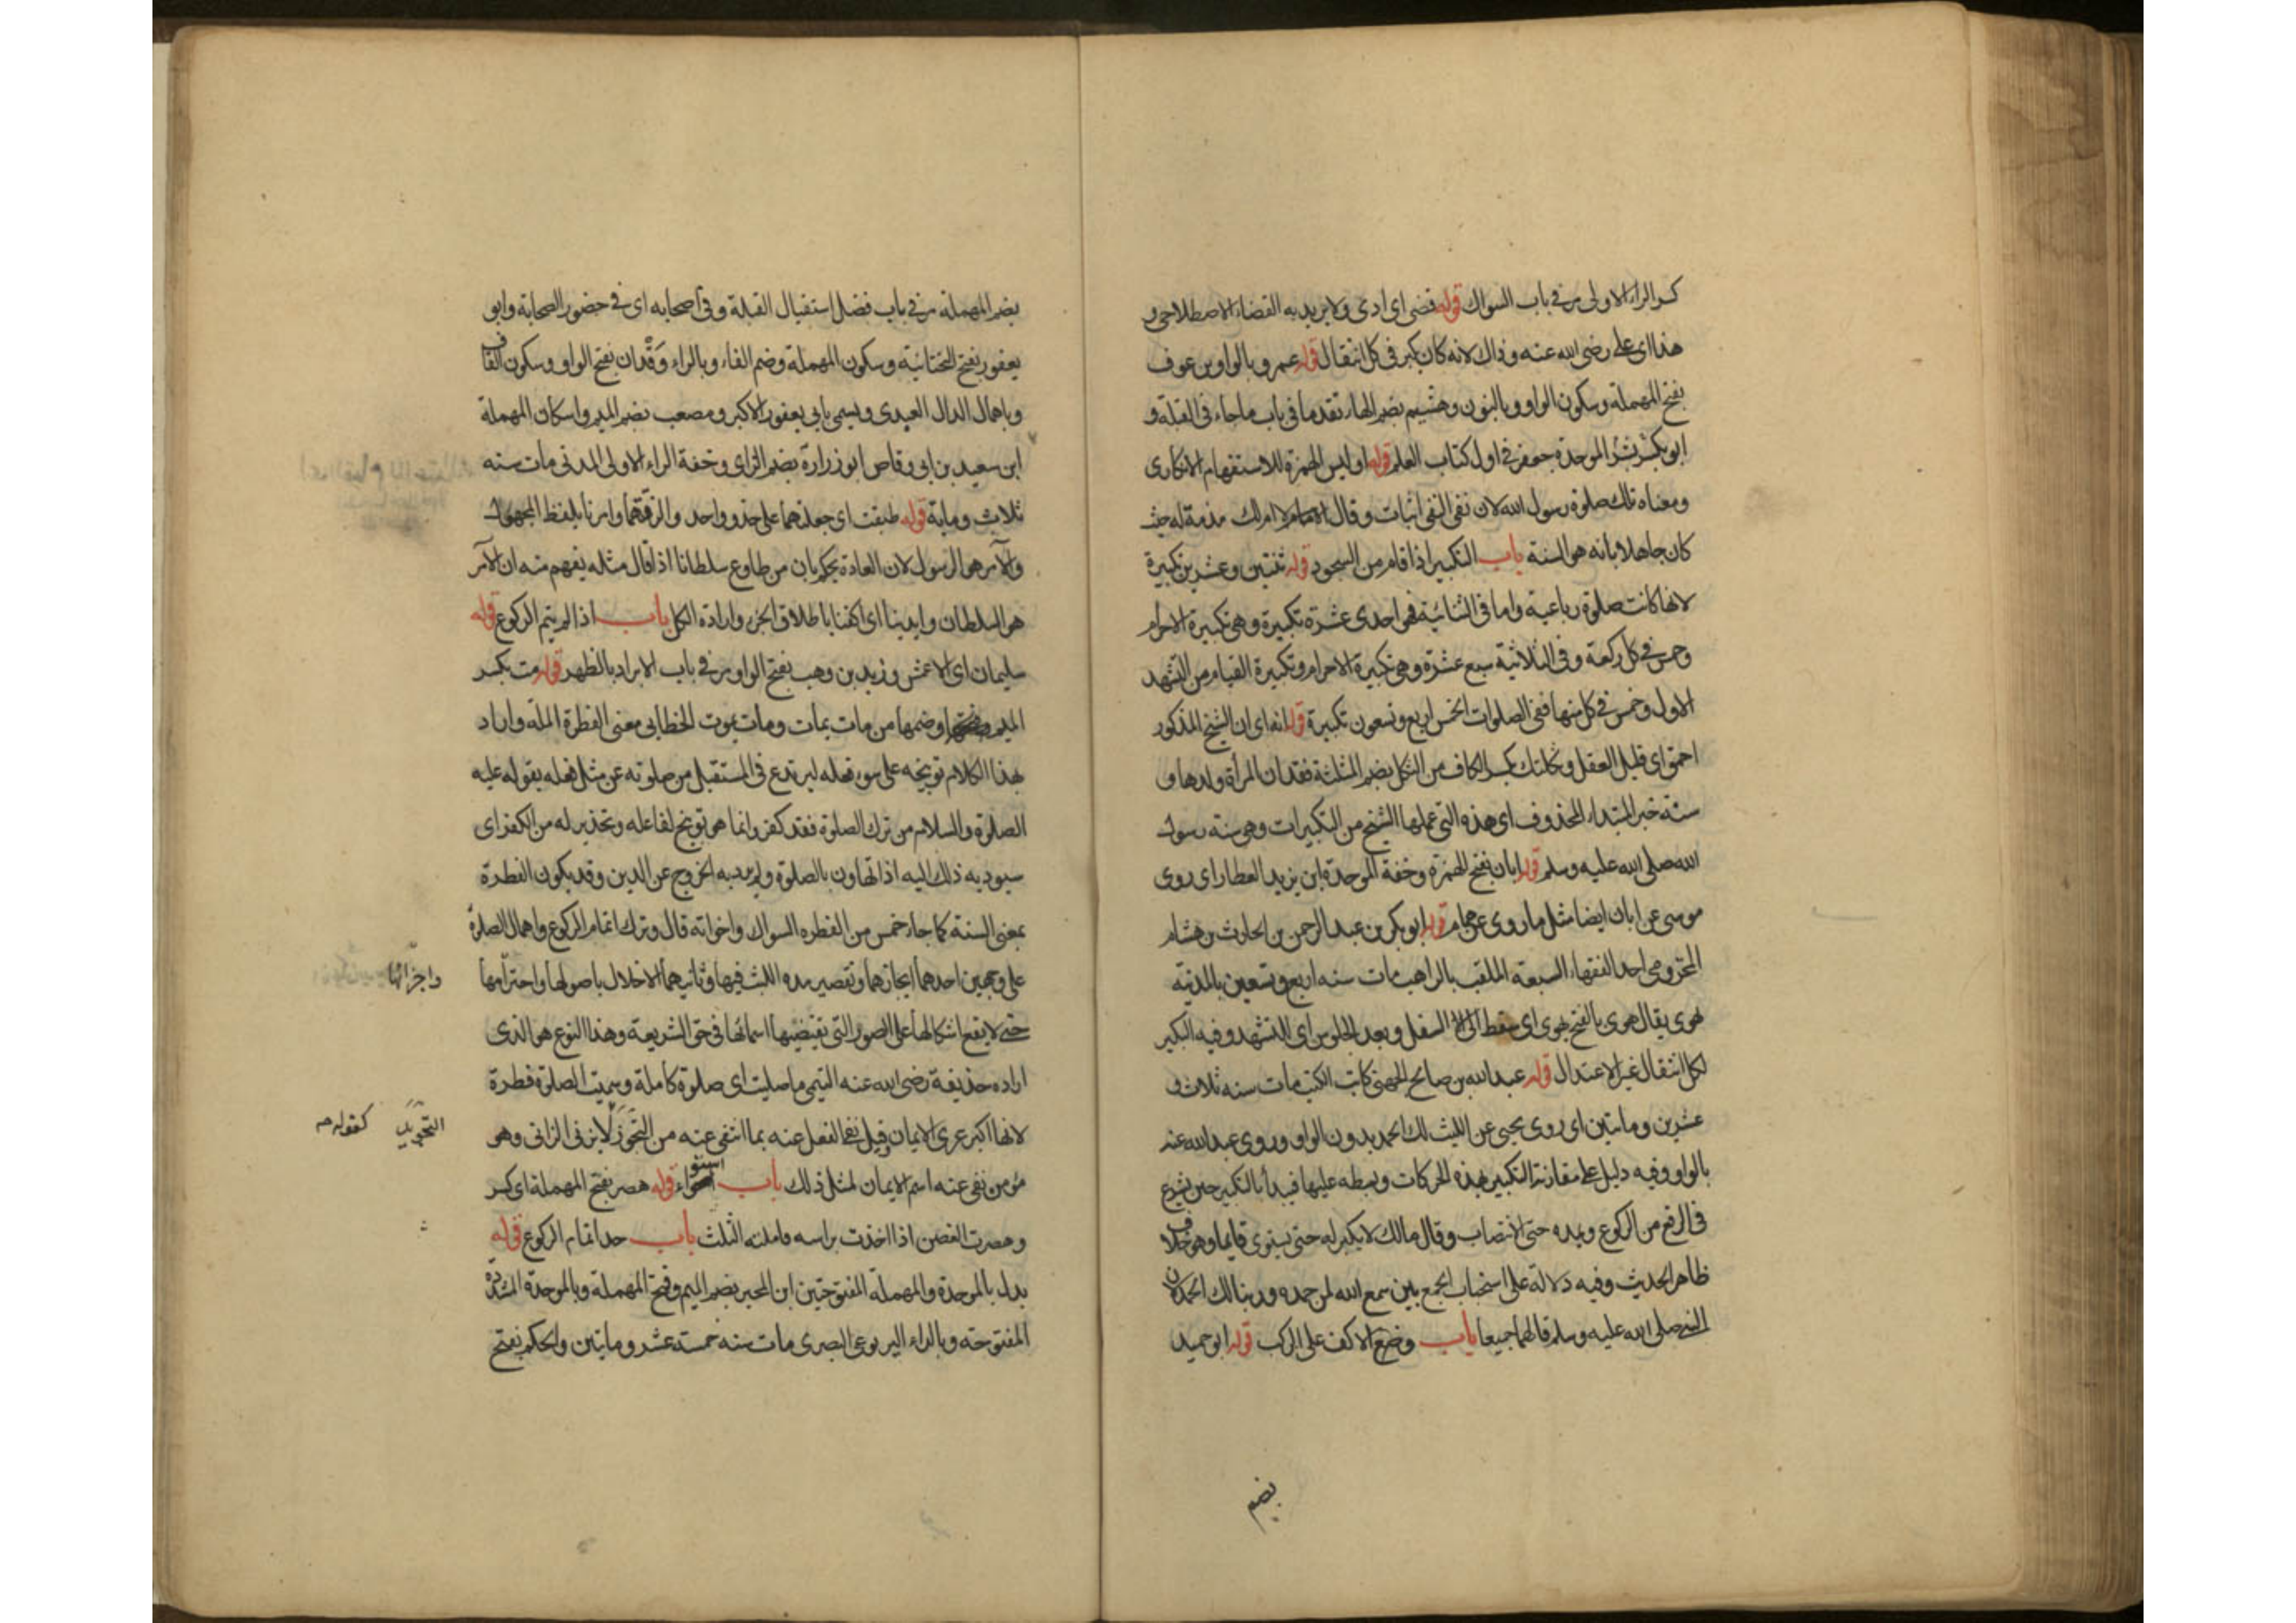 كسر الراء الاولى مر في باب السواك قوله قضى اى ادى ولا يريد به القضاء الاصطلاحى و
هذا اى على رضى الله عنه وذاك لانه كان يكبر فى كل انتقال قوله عمرو بالواو بن عوف
بفتح المهملة وسكون الواو وبالنون وهشيم بضم الهاء تقدما فى باب ما جاء فى القبلة و
ابو بشر الموحدة جعفر فى اول كتاب العلم قوله اوليس الهمزة للاستفهام الانكارى
ومعناه تلك صلوة رسول الله لان نفى النفى اثبات وقال لا ام لك مذمة له حيث
كان جاهلا بانه هو السنة باب التكبير اذا قام من السجود قوله ثنتين وعشرين تكبيرة
لانها كانت صلوة رباعية واما فى الثنائية فهى احدى عشرة تكبيرة وهى تكبيرة الاحرام
وخمس فى كل ركعة وفى الثلاثية سبع عشرة وهى تكبيرة الاحرام وتكبيرة القيام من التشهد
الاول وخمس فى كل منها ففى الصلوات الخمس اربع وتسعون تكبيرة قوله انه اى ان الشيخ المذكور
احمق اى قليل العقل وثكلتك بكسر الكاف من الثكل بضم المثلثة فقدان المرأة ولدها و
سنة خبر المبتداء المحذوف اى هذه التى عملها الشيخ من التكبيرات وهى سنة رسول
الله صلى الله عليه وسلم قوله ابان بفتح الهمزة وخفة الموحدة ابن يزيد العطار اى روى
موسى عن ابان ايضا مثل ما روى عن همام قوله ابو بكر بن عبد الرحمن بن الحارث بن هشام
المخزومى احد الفقهاء السبعة الملقب بالراهب مات سنه اربع وتسعين بالمدينة
هوى يقال هوى بالفتح يهوى اى سقط الى السفل وبعد الجلوس اى للتشهد وفيه التكبير
لكل انتقال غير الاعتدال قوله عبد الله بن صالح الجهنى كاتب الليث مات سنه ثلاث و
عشرين ومائتين اى روى يحيى عن الليث لك الحمد بدون الواو وروى عبد الله عنه
بالواو وفيه دليل على مقارنة التكبير بهذه الحركات وبسطه عليها فيبدأ بالتكبير حين يشرع
فى الرفع من الركوع ويمده حتى الانتصاب وقال مالك لا يكبر له حتى يستوى قايما وهو خلاف
ظاهر الحديث وفيه دلالة على استحباب الجمع بين سمع الله لمن حمده وربنا لك الحمد لان
النبى صلى الله عليه وسلم قالهما جميعا باب وضع الاكف على الركب قوله ابو حميد
بضم
بضم المهملة مر فى باب فضل استقبال القبلة وفى اصحابه اى فى حضور الصحابة وابو
يعفور بفتح التحتانية وسكون المهملة وضم الفاء وبالراء وقدان بفتح الواو وسكون القاف
وباهمال الدال العبدى ويسمى بابى يعفور الاكبر ومصعب بضم الميم واسكان المهملة
ابن سعيد بن ابى وقاص ابو زرارة بضم الزاى وخفة الراء الاولى المدنى مات سنه
ثلاث وماية قوله طبقت اى جعلتهما على حذو واحد والزقتهما وامرنا بلفظ المجهول
والآمر هو الرسول لان العادة يحكم بان من طاوع سلطانا اذا قال مثله يفهم منه ان الآمر
هو السلطان وايدينا اى اكفنا باطلاق الجزء وارادة الكل باب اذا لم يتم الركوع قوله
سليمان اى الاعمش وزيد بن وهب بفتح الواو مر فى باب الابراد بالظهر قوله مت بكسر
الميم وضمها من مات يمات ومات يموت الخطابى معنى الفطرة الملة واراد
بهذا الكلام توبيخه على سوء فعله ليرتدع فى المستقبل من صلوته عن مثل فعله يقوله عليه
الصلوة والسلام من ترك الصلوة فقد كفر وانما هو توبيخ لفاعله وتحذير له من الكفر اى
سيوديه ذلك اليه اذا تهاون بالصلوة ولم يرد به الخروج عن الدين وقد يكون الفطرة
بمعنى السنة كما جاء خمس من الفطره السواك واخواته قال وترك اتمام الركوع واهمال الصلوة
على وجهين احدهما ايجازها وتقصير مده اللبث فيها وثانيهما الاخلال باصولها واحترامها
واجزائها
حتى لا يقع اشكالها على الصور التى تقتضيها اسمائها فى حق الشريعة وهذا النوع هو الذى
اراده حذيفة رضى الله عنه التيمى ما صليت اى صلوة كاملة وسميت الصلوة فطرة
لانها اكبر عرى الايمان وقيل نفى الفعل عنه بما انتفى عنه من التجوز لا يزنى الزانى وهو
التجويد كقوله صم
مؤمن نفى عنه اسم الايمان لمثل ذلك باب استواء قوله هصر بفتح المهملة اى كسر
وهصرت الغصن اذا اخذت براسه فاملته الثلث باب حد اتمام الركوع قوله
بدل بالموحدة والمهملة المفتوحتين ابن المحبر بضم الميم وفتح المهملة وبالموحدة المشددة
المفتوحه وبالراء اليربوعى البصرى مات سنه خمسة عشر ومايتين والحكم بفتح